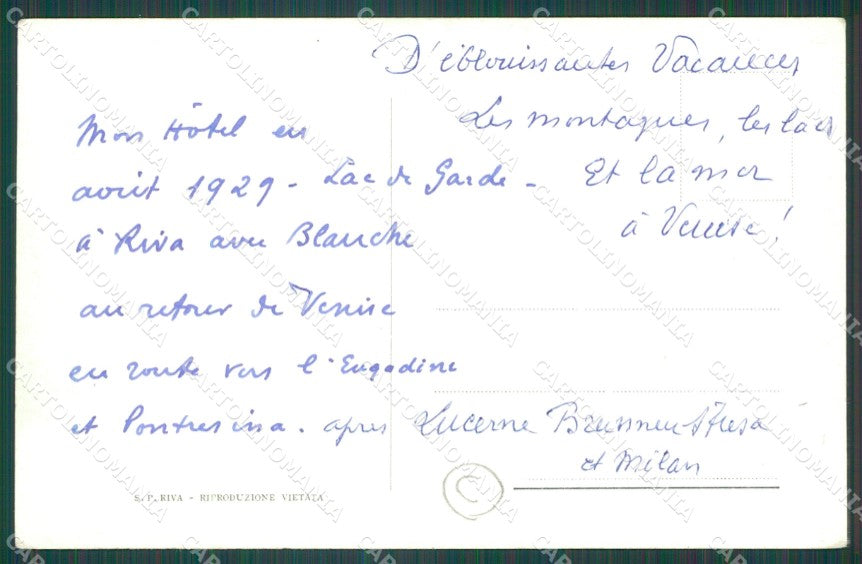 D'éblouissantes Vacances
Les montagnes, les lacs
Et la mer
à Venise!
Mon Hôtel en
août 1929 - Lac de Garde -
à Riva avec Blanche
au retour de Venise
en route vers l'Engadine
et Pontresina. après Lucerne Brunnen Stresa
et Milan
S.P. RIVA - RIPRODUZIONE VIETATA
C
CARTOLINOMANIA